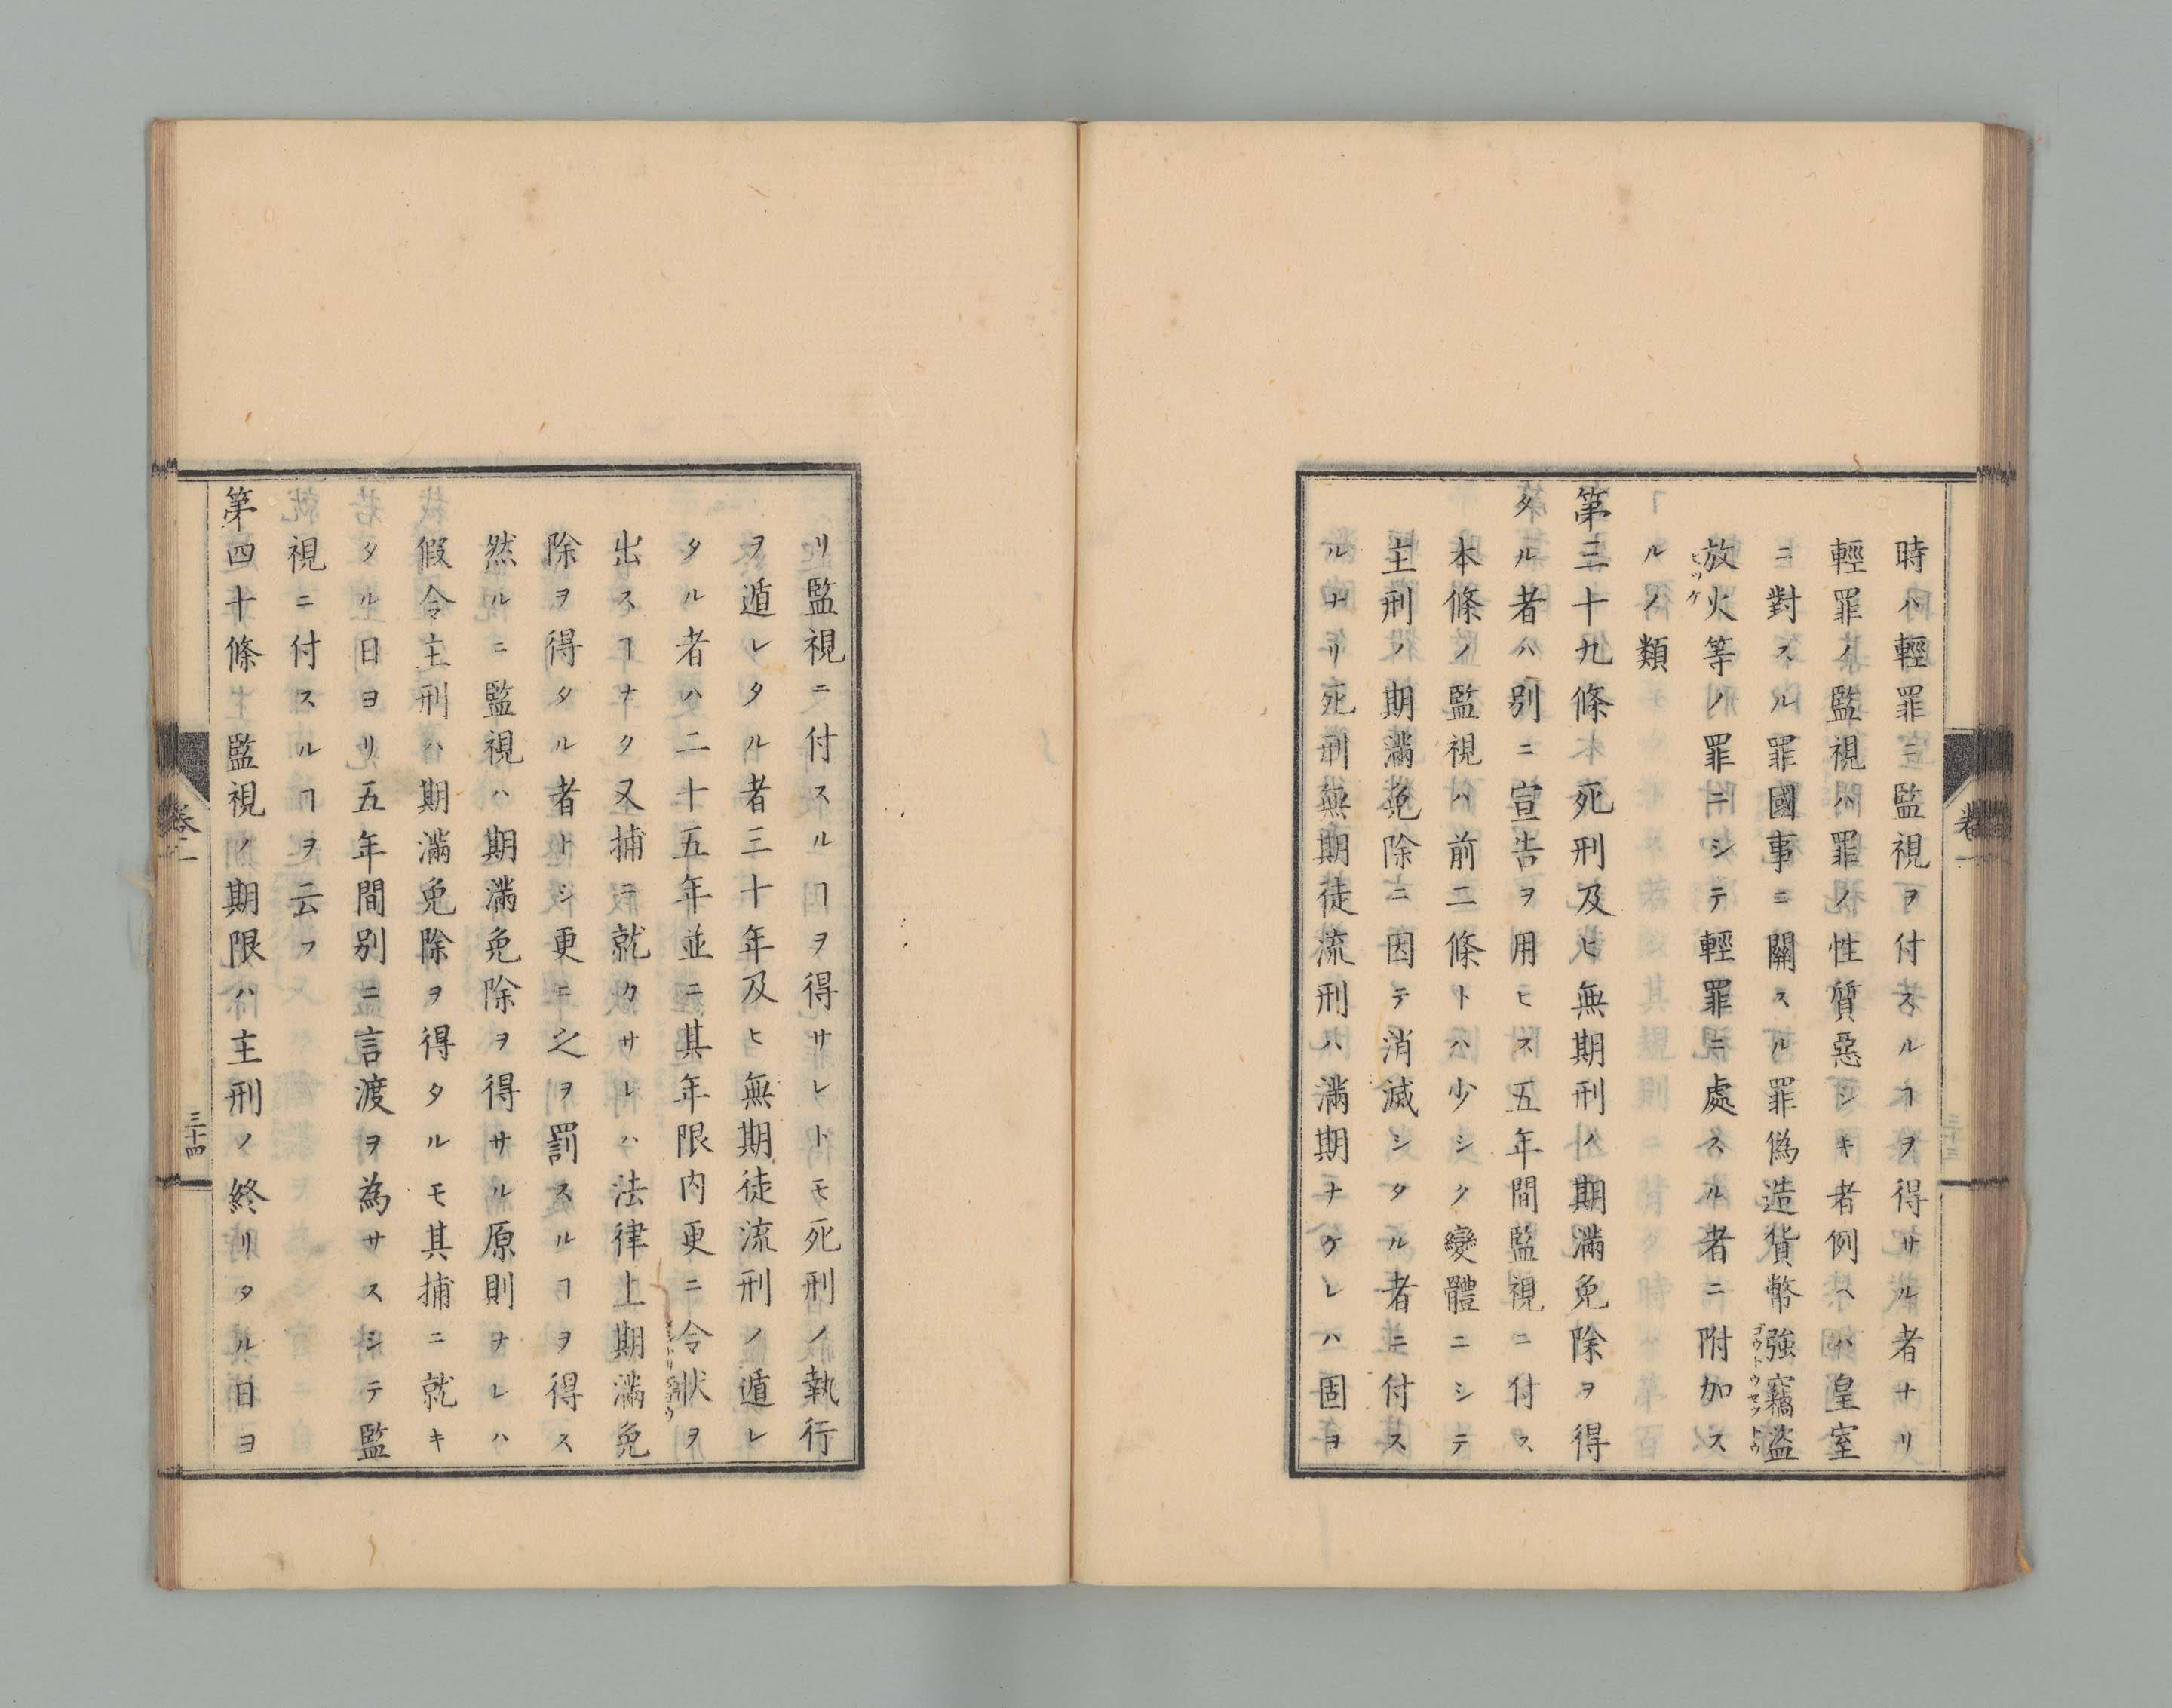 時ハ輕罪ニ監視ヲ付スルヿヲ得サル者ナリ
輕罪ノ監視ハ罪ノ性質惡シキ者例ヘハ皇室
ニ對スル罪國事ニ關スル罪僞造貨幣強竊盗
ゴウトウセツトウ
放火等ノ罪ニシテ輕罪ニ處スル者ニ附加ス
ヒツケ
ルノ類
第三十九條死刑及ヒ無期刑ノ期滿免除ヲ得
タル者ハ別ニ宣告ヲ用ヒス五年間監視ニ付ス
本條ノ監視ハ前二條トハ少シク變體ニシテ
主刑ノ期滿免除ニ因テ消滅シタル者ニ付ス
ルナリ死刑無期徒流刑ハ滿期ナケレハ固ヨ
卷一
リ監視ニ付スルヿヲ得サレトモ死刑ノ執行
ヲ遁レタル者三十年及ヒ無期徒流刑ノ遁レ
タル者ハ二十五年並ニ其年限内更ニ令狀ヲ
出スヿナク又捕ニ就カサレハ法律上期滿免
除ヲ得タル者トシ更ニ之ヲ罰スルヿヲ得ス
然ルニ監視ハ期滿免除ヲ得サル原則ナレハ
假令主刑ハ期滿免除ヲ得タルモ其捕ニ就キ
タル日ヨリ五年間別ニ言渡ヲ為サスシテ監
視ニ付スルヿヲ云フ
第四十條監視ノ期限ハ主刑ノ終リタル日ヨ
卷一
三十四